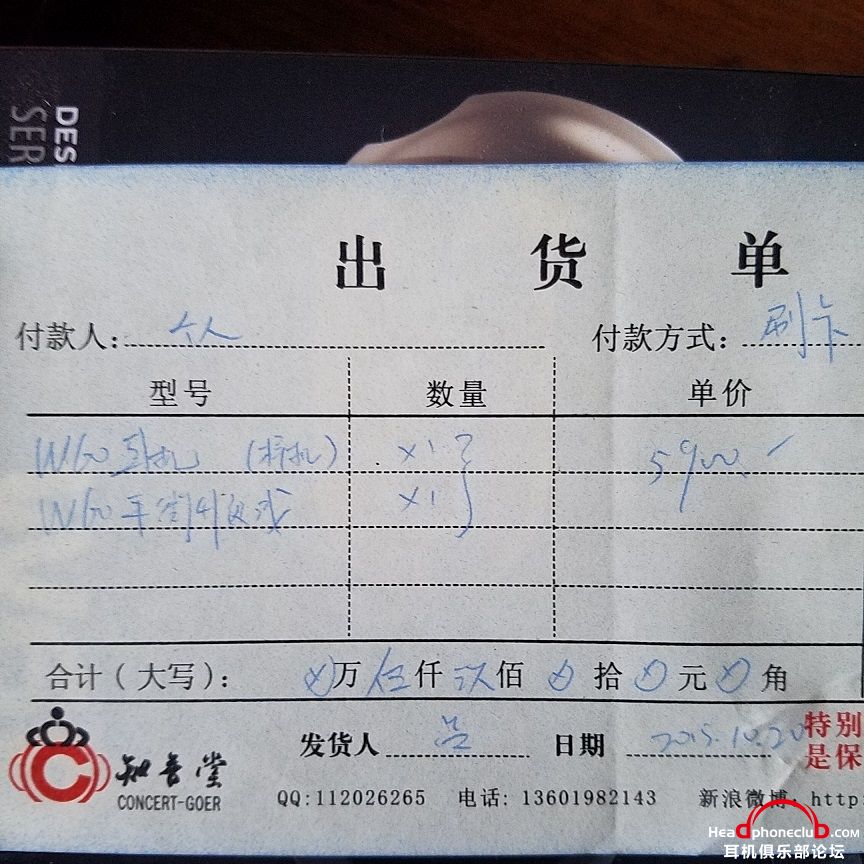 DES
SER
出货单
付款人：个人 付款方式：刷卡
型号 数量 单价
W60耳机（样机） ×1 5900.
W60平衡升级线 ×1
合计（大写）： 万伍仟 佰 拾 元 角
发货人 日期 2015.10.20
特别
是保
知音堂
CONCERT-GOER
QQ:112026265 电话：13601982143 新浪微博：http:
Headphoneclub.com
耳机俱乐部论坛